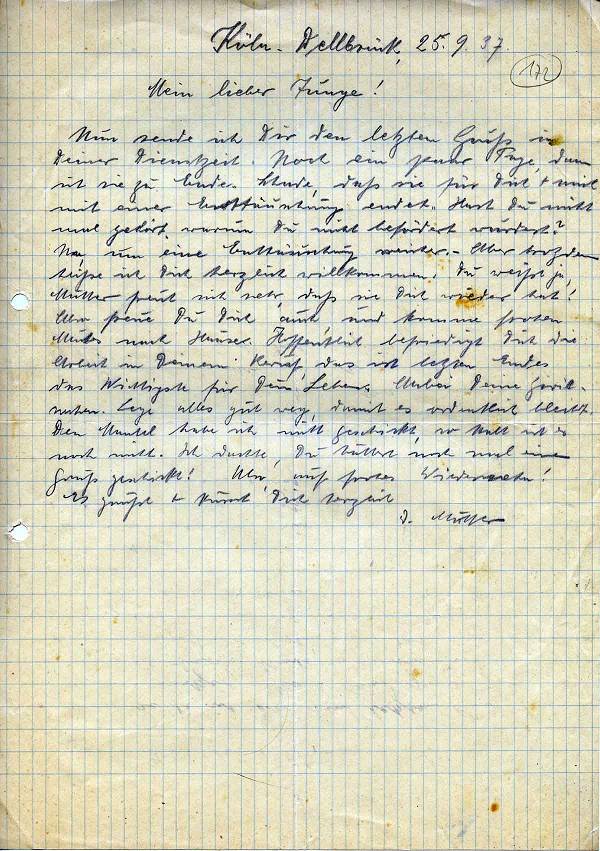 Köln-Dellbrück, 25.9.37.
172
Mein lieber Junge!
Nun sende ich Dir den letzten Gruß in
Deiner Dienstzeit. Noch ein paar Tage, dann
ist sie zu Ende. Schade, daß sie für Dich + mich
mit einer Enttäuschung endet. Hast Du nicht
mal gehört, warum Du nicht befördert wurdest?
Na, um eine Enttäuschung weiter. - Aber trotzdem
heiße ich Dich herzlich willkommen. Du weißt ja,
Mutter freut sich sehr, daß sie Dich wieder hat!
Also freue Du Dich auch und komme frohen
Mutes nach Hause. Hoffentlich befriedigt Dich die
Arbeit in Deinem Beruf, das ist letzten Endes
das Wichtigste für Dein Leben. Deine
Lege alles gut weg, damit es ordentlich bleibt.
Den Mantel habe ich nicht geschickt, so kalt ist es
noch nicht. Ich dachte, Du hättest noch mal einen
Gruß geschickt! Also, auf frohes Wiedersehn!
Es grüßt + küsst Dich herzlich
D. Mutter